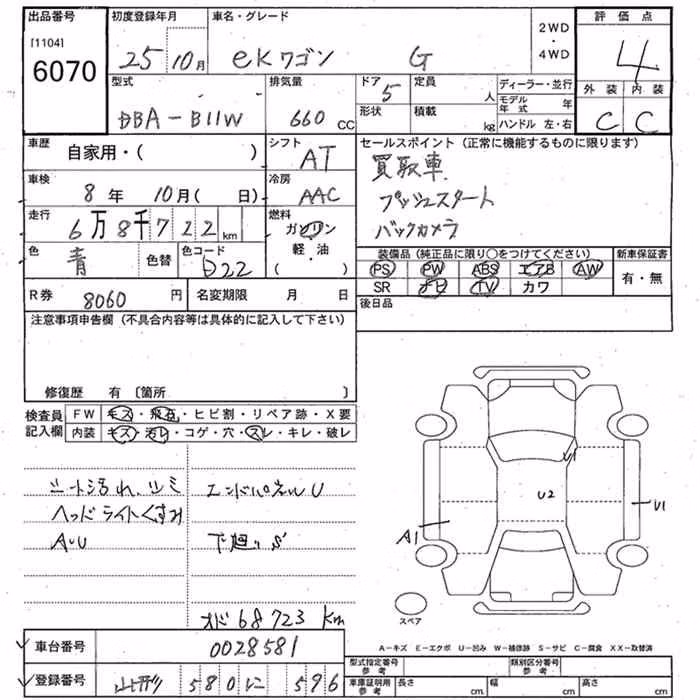 出品番号 初度登録年月 車名・グレード 2WD ・ 4WD 評価点
[1104] 6070 25 10月 eKワゴン G 4
型式 排気量 ドア 5 定員 人 ディーラー・並行 外装 内装
DBA-B11W 660 CC 形状 積載 kg モデル年式 年 C C
ハンドル 左・右
車歴 自家用・( ) シフト AT セールスポイント (正常に機能するものに限ります)
買取車
車検 8年 10月( 日) 冷房 AAC プッシュスタート
走行 6万8千722km 燃料 ガソリン 軽・油 ( ) バックカメラ
色 青 色替 色コード D22
装備品 (純正品に限り〇をつけてください) 新車保証書
PS PW ABS エアB AW 有・無
SR ナビ TV カワ
R券 8060円 名変期限 月 日 後日品
注意事項申告欄 (不具合内容等は具体的に記入して下さい)
修復歴 有 〔箇所 〕
検査員記入欄 FW キズ・飛石・ヒビ割・リペア跡・X要
内装 キズ・汚レ・コゲ・穴・スレ・キレ・破レ
シート汚れ、シミ エンドパネルU
ヘッドライトくすみ
A・U 下廻りS
オド 68723 Km
U1
U2
U1
A1
スペア
車台番号 0028581
A-キズ E-エクボ U-凹み W-補修跡 S-サビ C-腐食 XX-交替済
登録番号 580 に 596
型式指定番号 参考 類別区分番号 参考
車庫証明用 参考 長さ cm 幅 cm 高さ cm